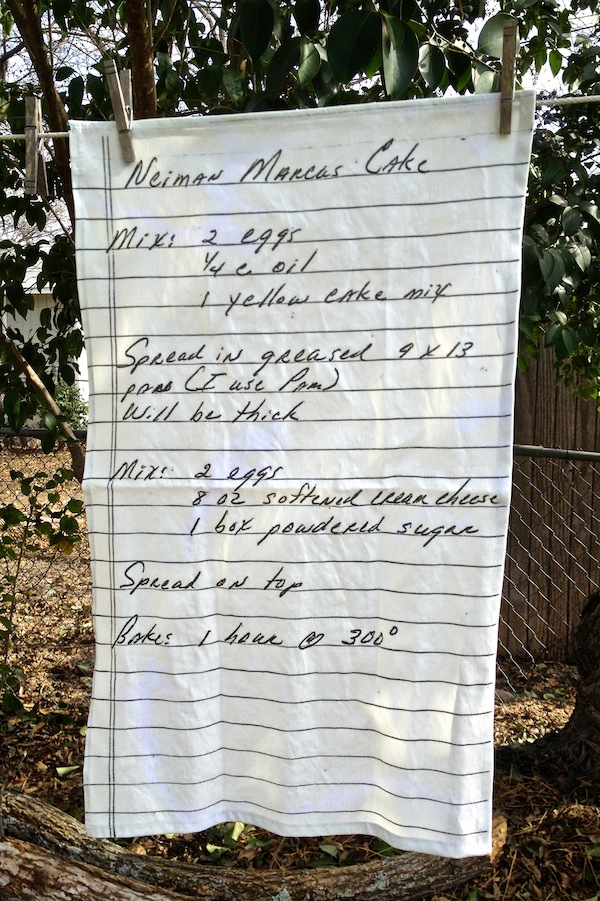 Neiman Marcus Cake
Mix: 2 eggs
1/4 c. oil
1 yellow cake mix
Spread in greased 9 x 13
pans (I use Pam)
Will be thick
Mix: 2 eggs
8 oz softened cream cheese
1 box powdered sugar
Spread on top
Bake: 1 hour @ 300°